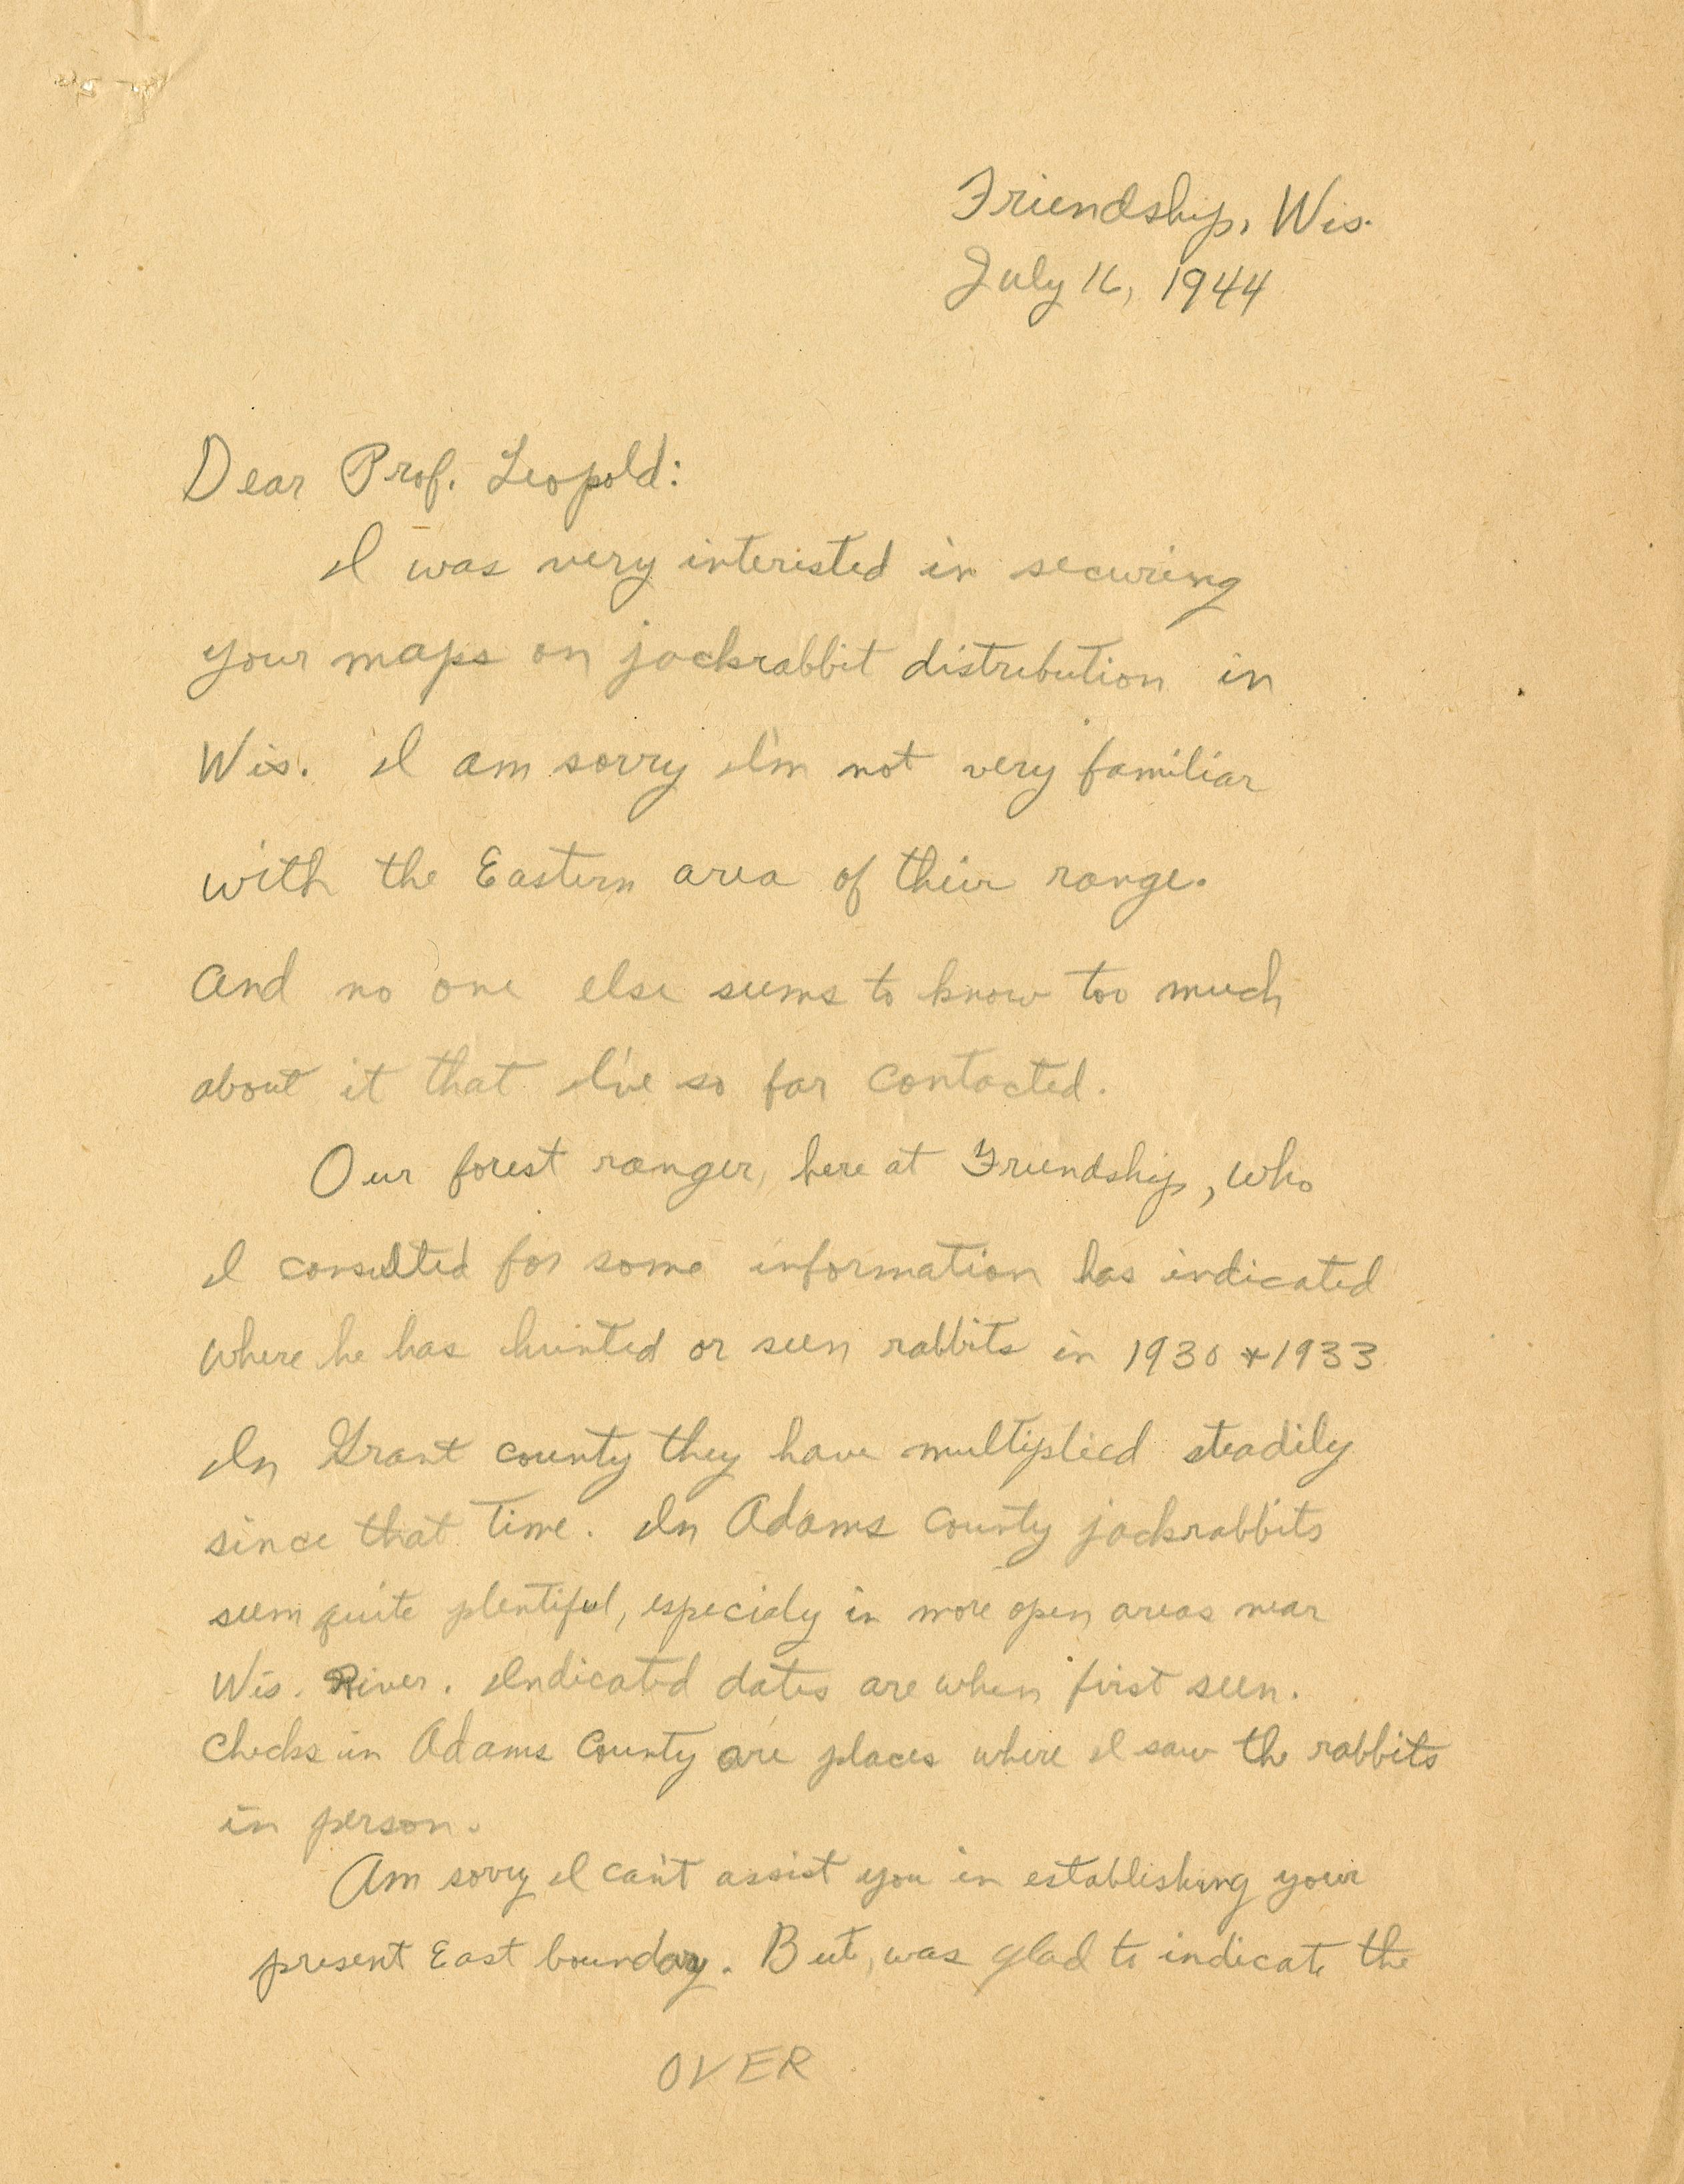 Friendship, Wis.
July 16, 1944
Dear Prof. Leopold:
I was very interested in securing
your maps on jackrabbit distribution in
Wis. I am sorry I'm not very familiar
with the Eastern area of their range.
And no one else seems to know too much
about it that I've so far contacted.
Our forest ranger, here at Friendship, who
I consulted for some information has indicated
where he has hunted or seen rabbits in 1930 & 1933
In Grant county they have multiplied steadily
since that time. In Adams County jackrabbits
seem quite plentiful, especialy in more open areas near
Wis. River. Indicated dates are when first seen.
Checks in Adams County are places where I saw the rabbits
in person.
Am sorry I can't assist you in establishing your
present East bounday. But, was glad to indicate the
OVER